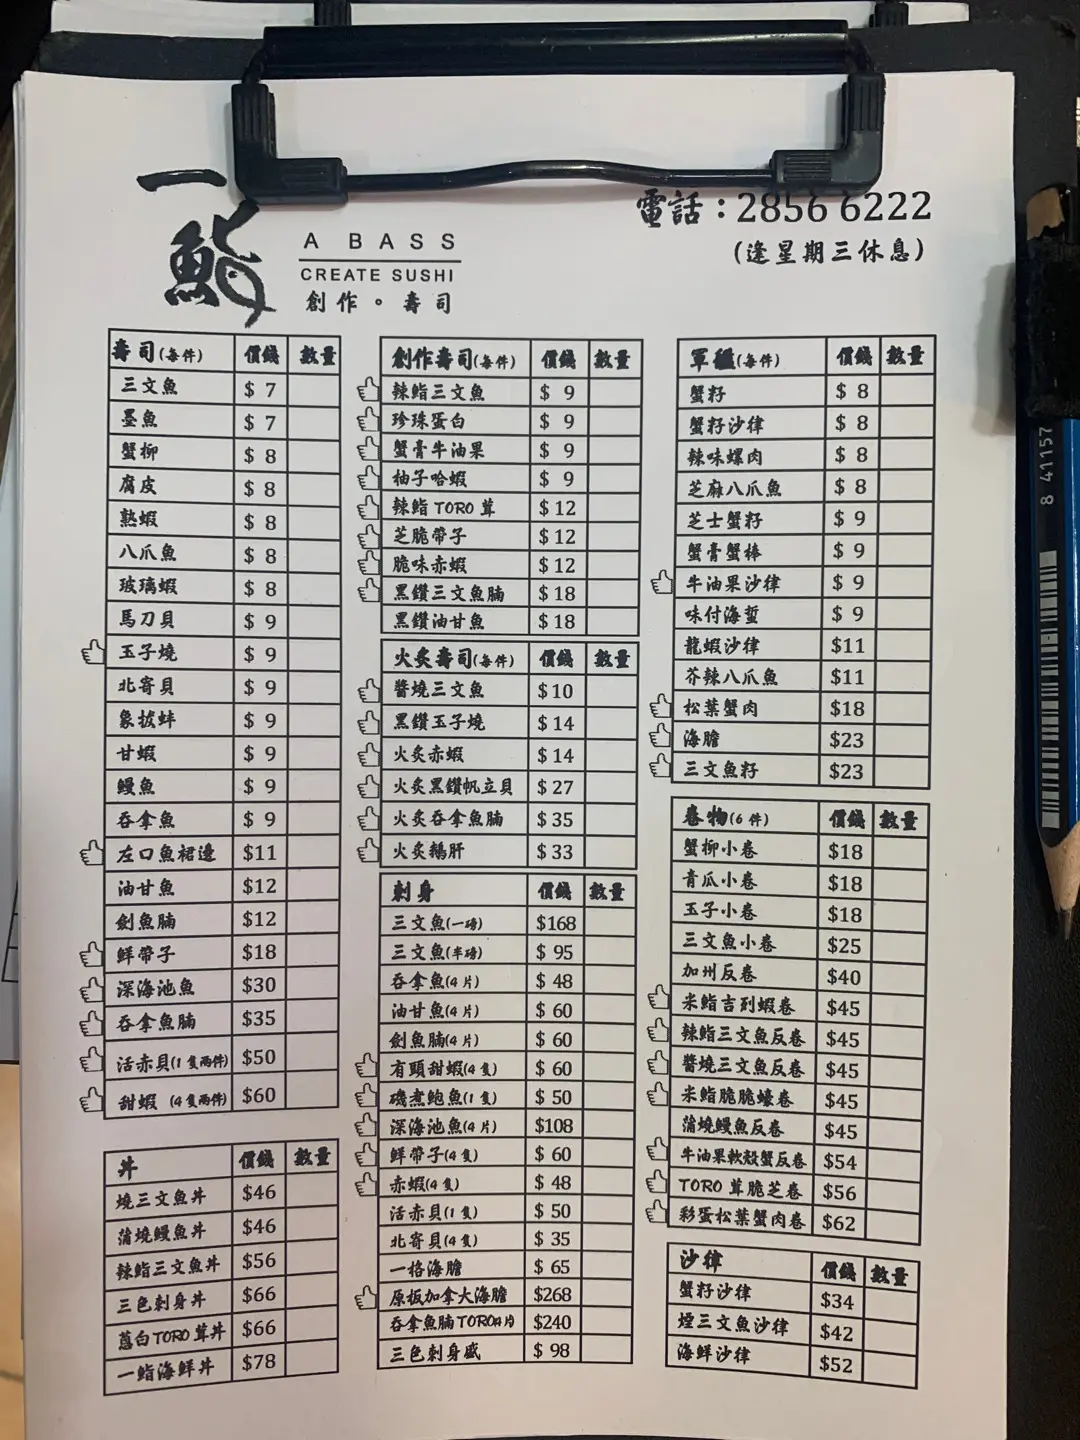 一鮨
A BASS
CREATE SUSHI
創作。壽司
電話：2856 6222
(逢星期三休息)
壽司(每件) 價錢 數量
三文魚 $ 7
墨魚 $ 7
蟹柳 $ 8
腐皮 $ 8
熟蝦 $ 8
八爪魚 $ 8
玻璃蝦 $ 8
馬刀貝 $ 9
玉子燒 $ 9
北寄貝 $ 9
象拔蚌 $ 9
甘蝦 $ 9
鰻魚 $ 9
吞拿魚 $ 9
左口魚裙邊 $11
油甘魚 $12
劍魚腩 $12
鮮帶子 $18
深海池魚 $30
吞拿魚腩 $35
活赤貝(1 隻兩件) $50
甜蝦 (4 隻兩件) $60
丼 價錢 數量
燒三文魚丼 $46
蒲燒鰻魚丼 $46
辣鮨三文魚丼 $56
三色刺身丼 $66
蔥白TORO茸丼 $66
一鮨海鮮丼 $78
創作壽司(每件) 價錢 數量
辣鮨三文魚 $ 9
珍珠蛋白 $ 9
蟹膏牛油果 $ 9
柚子哈蝦 $ 9
辣鮨 TORO 茸 $ 12
芝脆帶子 $ 12
脆味赤蝦 $ 12
黑鑽三文魚腩 $ 18
黑鑽油甘魚 $ 18
火炙壽司(每件) 價錢 數量
醬燒三文魚 $ 10
黑鑽玉子燒 $ 14
火炙赤蝦 $ 14
火炙黑鑽帆立貝 $ 27
火炙吞拿魚腩 $ 35
火炙鵝肝 $ 33
刺身 價錢 數量
三文魚(一磅) $168
三文魚(半磅) $ 95
吞拿魚(4 片) $ 48
油甘魚(4 片) $ 60
劍魚腩(4 片) $ 60
有頭甜蝦(4 隻) $ 60
磯煮鮑魚(1 隻) $ 50
深海池魚(4 片) $108
鮮帶子(4 隻) $ 60
赤蝦(4 隻) $ 48
活赤貝(1 隻) $ 50
北寄貝(4 隻) $ 35
一格海膽 $ 65
原板加拿大海膽 $268
吞拿魚腩TORO(4片) $240
三色刺身盛 $ 98
軍艦(每件) 價錢 數量
蟹籽 $ 8
蟹籽沙律 $ 8
辣味螺肉 $ 8
芝麻八爪魚 $ 8
芝士蟹籽 $ 9
蟹膏蟹棒 $ 9
牛油果沙律 $ 9
味付海蜇 $ 9
龍蝦沙律 $11
芥辣八爪魚 $11
松葉蟹肉 $18
海膽 $23
三文魚籽 $23
卷物(6 件) 價錢 數量
蟹柳小卷 $18
青瓜小卷 $18
玉子小卷 $18
三文魚小卷 $25
加州反卷 $40
米鮨吉列蝦卷 $45
辣鮨三文魚反卷 $45
醬燒三文魚反卷 $45
米鮨脆脆蠔卷 $45
蒲燒鰻魚反卷 $45
牛油果軟殼蟹反卷 $54
TORO 茸脆芝卷 $56
彩蛋松葉蟹肉卷 $62
沙律 價錢 數量
蟹籽沙律 $34
煙三文魚沙律 $42
海鮮沙律 $52
8 41157